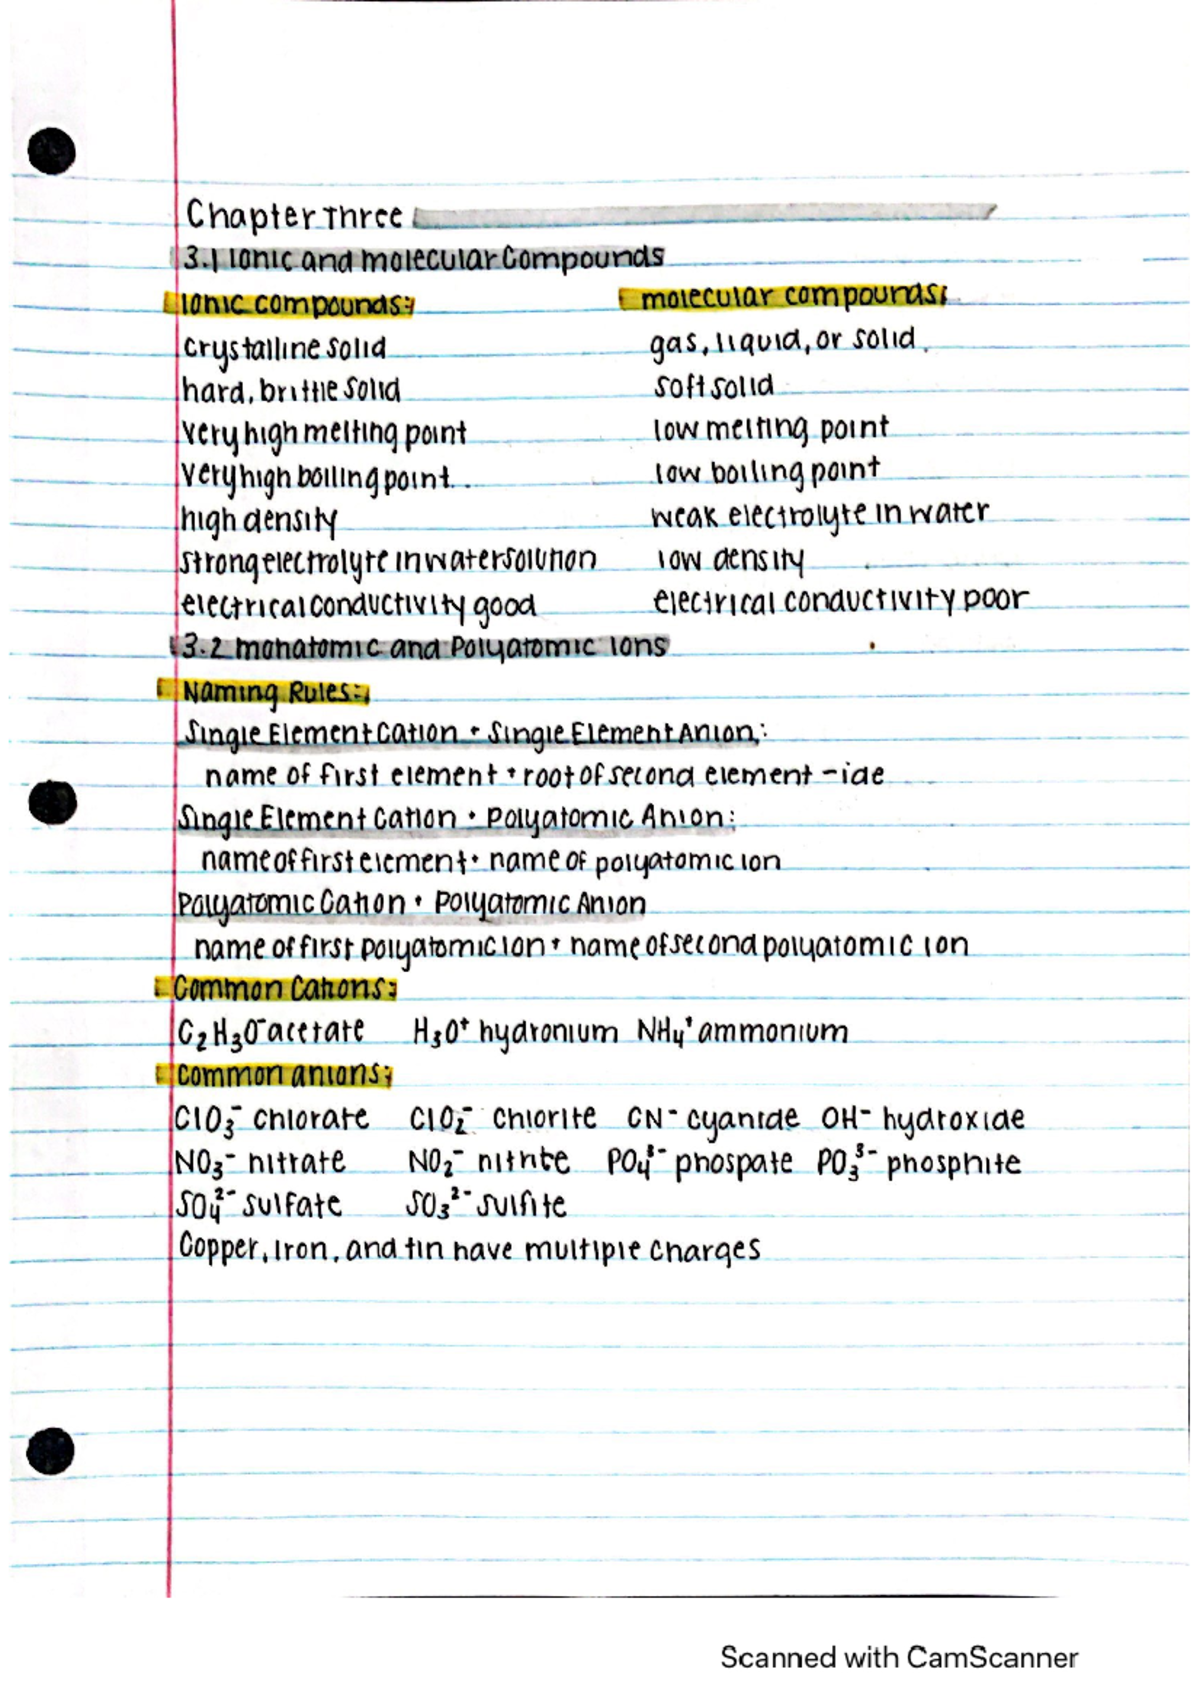 Chapter Three
3.1 Ionic and molecular Compounds
Ionic compounds: molecular compounds:
crystalline solid gas, liquid, or solid.
hard, brittle solid soft solid
very high melting point low melting point
very high boiling point low boiling point
high density weak electrolyte in water
strong electrolyte in water solution low density
electrical conductivity good electrical conductivity poor
3.2 monatomic and Polyatomic Ions
Naming Rules:
Single Element Cation + Single Element Anion:
name of first element + root of second element -ide
Single Element Cation + Polyatomic Anion:
name of first element + name of polyatomic ion
Polyatomic Cation + Polyatomic Anion
name of first polyatomic ion + name of second polyatomic ion
Common Cations:
C₂H₃O⁻ acetate H₃O⁺ hydronium NH₄⁺ ammonium
Common anions:
ClO₃⁻ chlorate ClO₂⁻ chlorite CN⁻ cyanide OH⁻ hydroxide
NO₃⁻ nitrate NO₂⁻ nitrite PO₄³⁻ phospate PO₃³⁻ phosphite
SO₄²⁻ sulfate SO₃²⁻ sulfite
Copper, Iron, and tin have multiple charges
Scanned with CamScanner